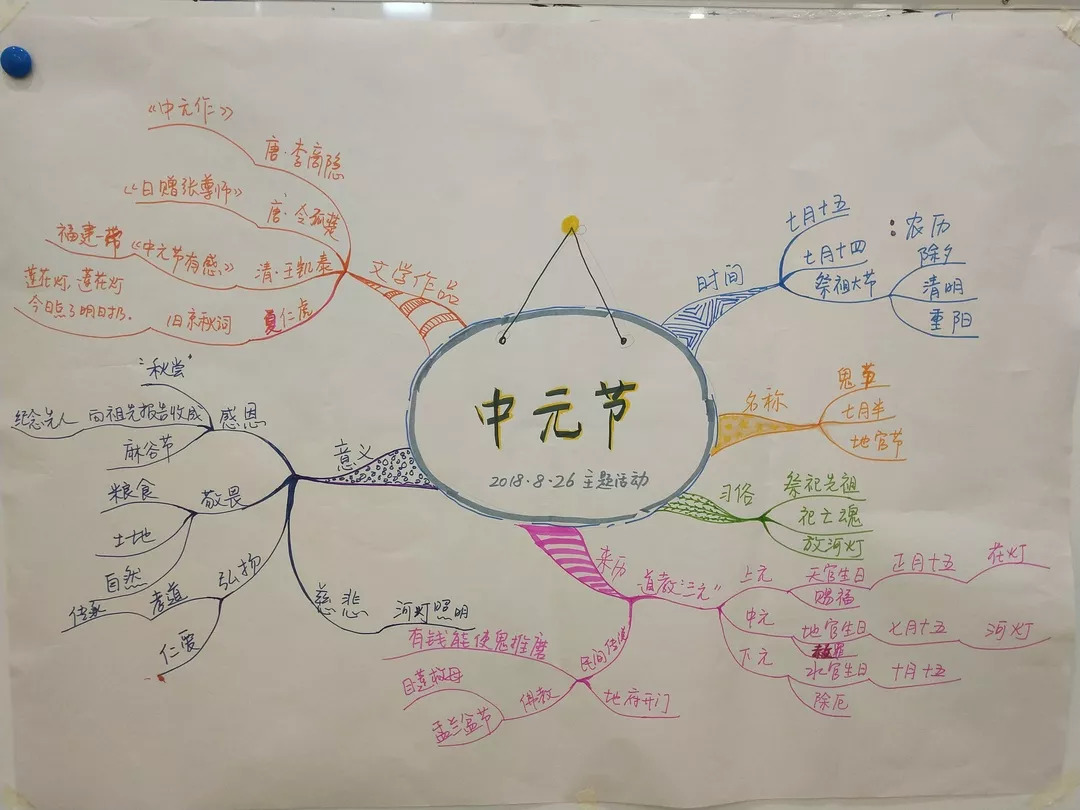 中元节
2018·8·26 主题活动
时间
七月十五
七月十四
祭祖大节
：农历
除夕
清明
重阳
名称
鬼节
七月半
地官节
习俗
祭祀先祖
祀亡魂
放河灯
来历
道教"三元"
上元
天官生日
赐福
正月十五
花灯
中元
地官生日
赦罪
七月十五
河灯
下元
水官生日
除厄
十月十五
民间传说
有钱能使鬼推磨
佛教
目莲救母
盂兰盆节
地府开门
意义
感恩
"秋尝"
向祖先报告收成
纪念先人
麻谷节
敬畏
粮食
土地
自然
弘扬
孝道
传承
仁爱
慈悲
河灯照明
文学作品
唐·李商隐
《中元作》
唐·令狐楚
《日赠张尊师》
清·王凯泰
《中元节有感》
福建一带
夏仁虎
旧京秋词
莲花灯，莲花灯
今日点了明日扔.